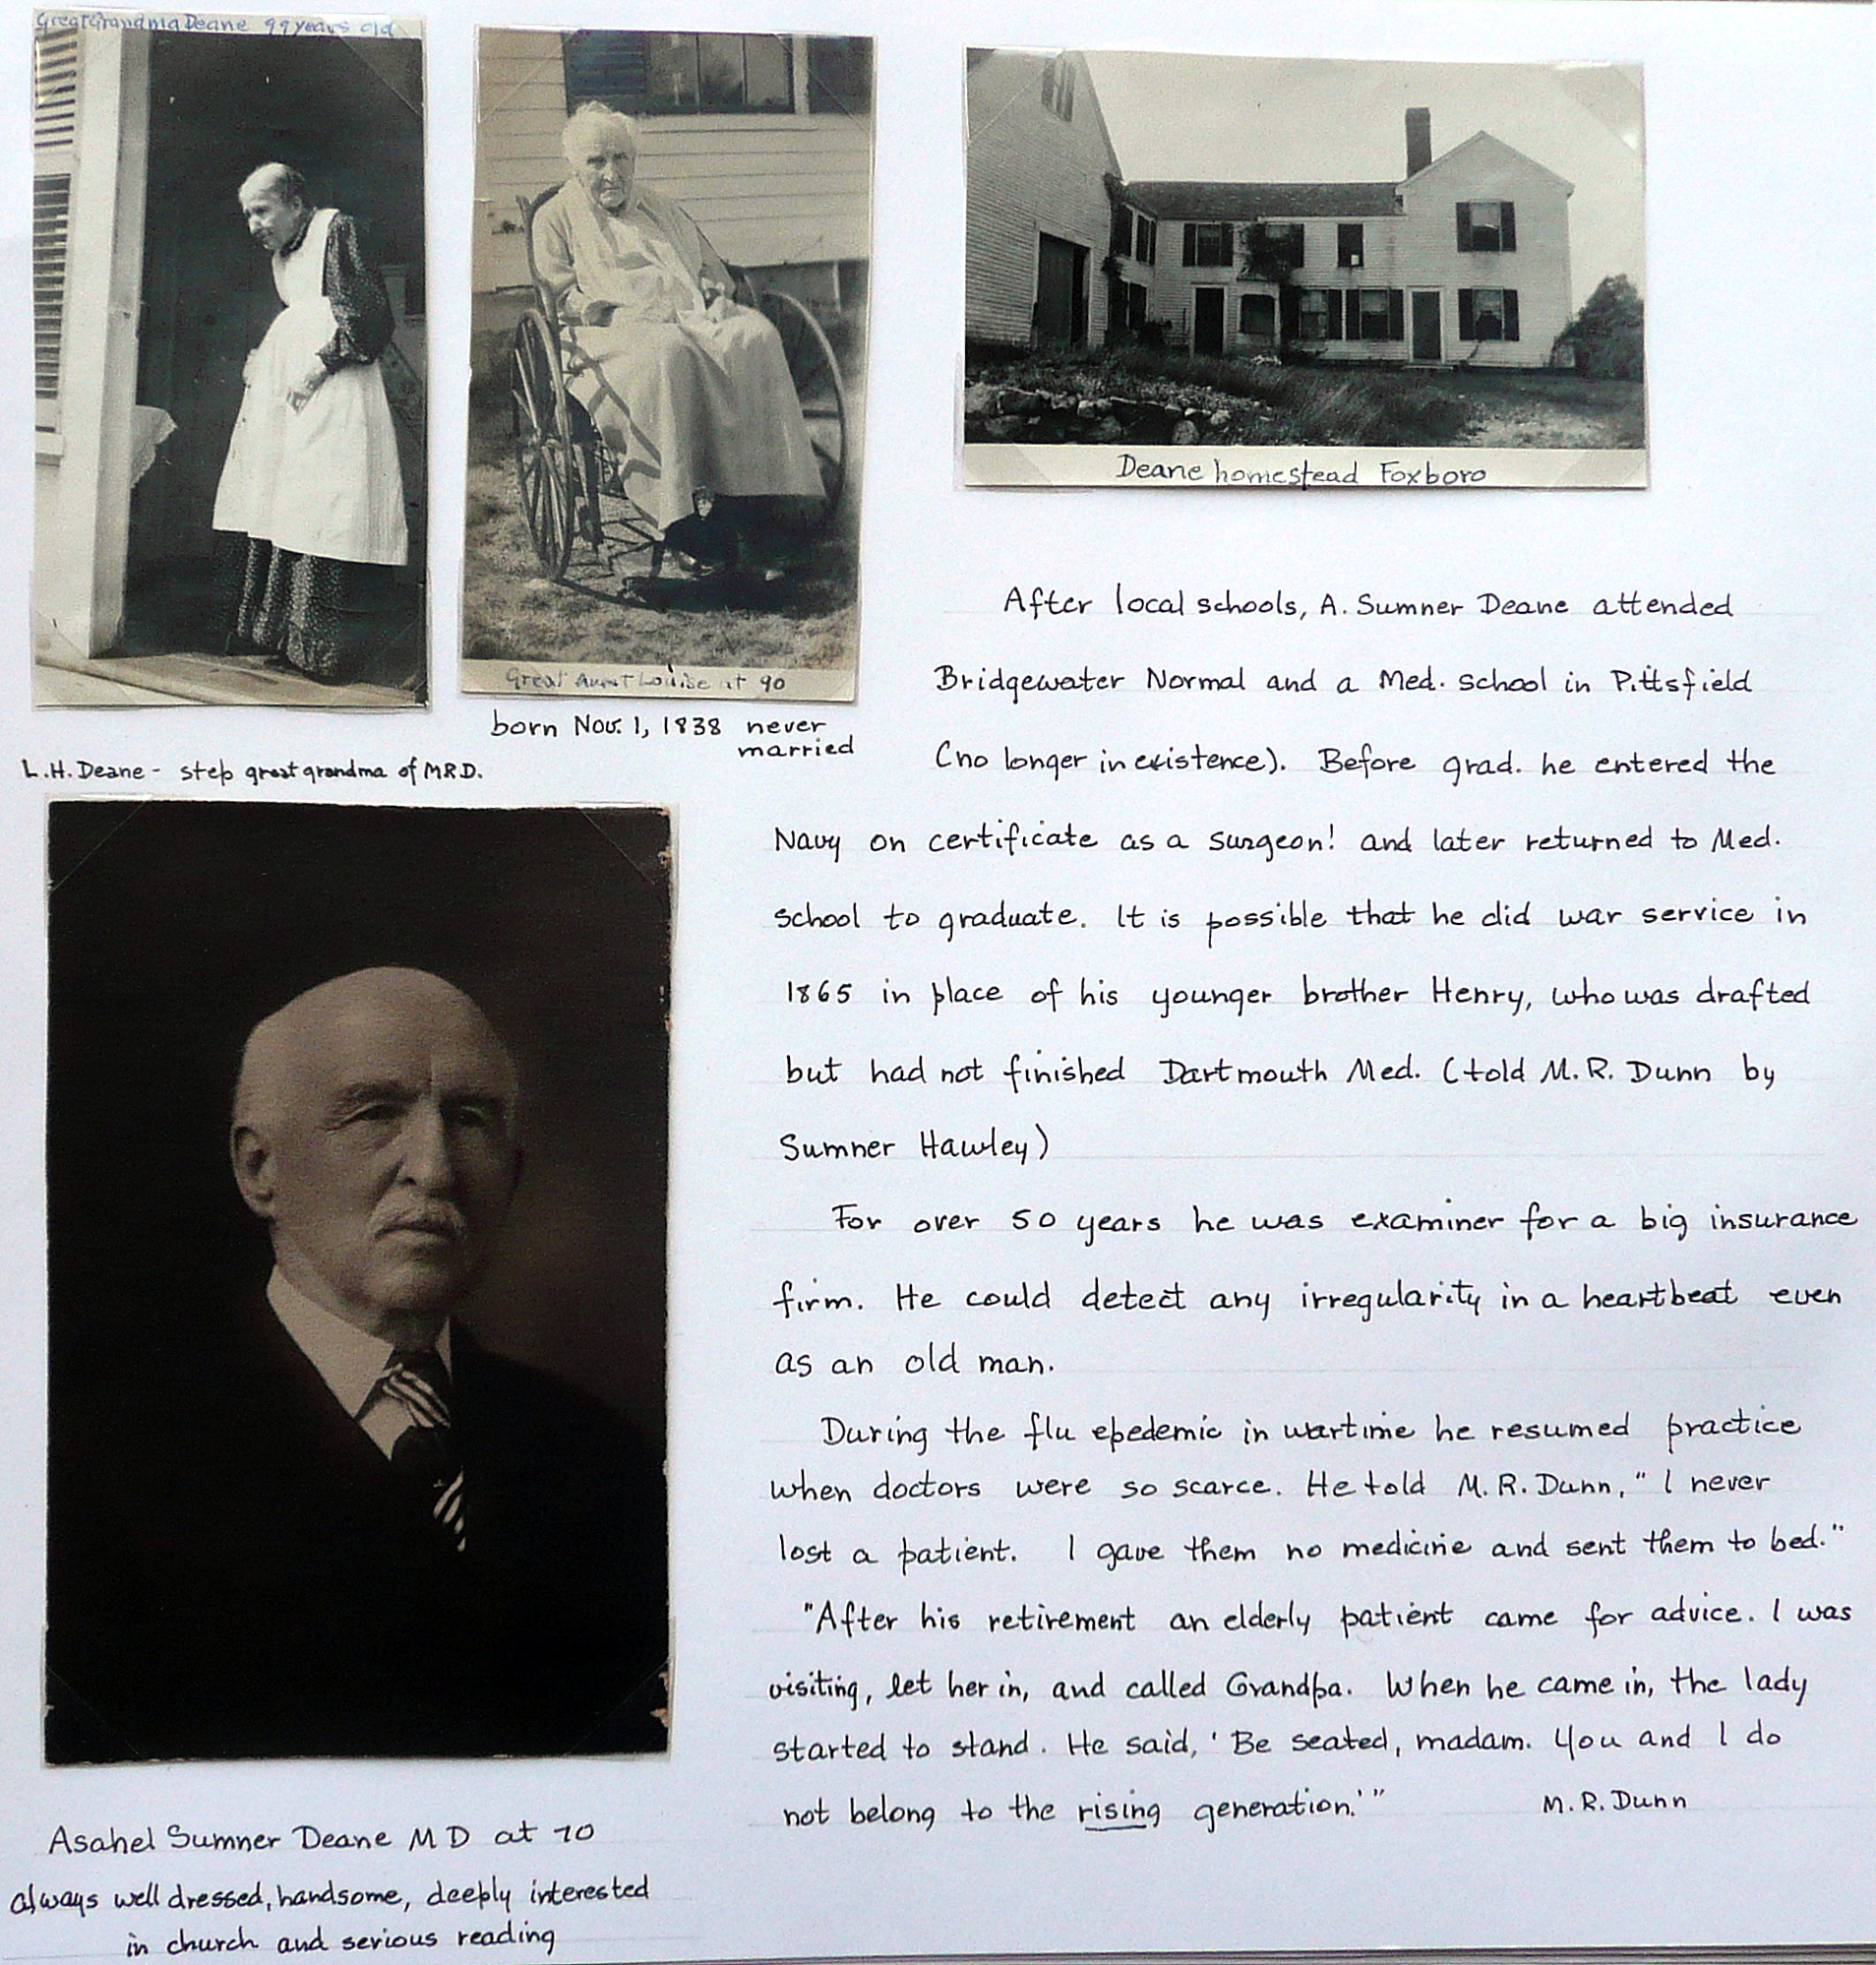 Great Grandma Deane 99 years old
Great Aunt Louise at 90
born Nov. 1, 1838 never
married
L.H. Deane - step great grandma of MRD.
Deane homestead Foxboro
After local schools, A. Sumner Deane attended
Bridgewater Normal and a Med. school in Pittsfield
(no longer in existence). Before grad. he entered the
Navy on certificate as a surgeon! and later returned to Med.
school to graduate. It is possible that he did war service in
1865 in place of his younger brother Henry, who was drafted
but had not finished Dartmouth Med. (told M.R. Dunn by
Sumner Hawley)
For over 50 years he was examiner for a big insurance
firm. He could detect any irregularity in a heartbeat even
as an old man.
During the flu epedemic in wartime he resumed practice
when doctors were so scarce. He told M.R. Dunn, "I never
lost a patient. I gave them no medicine and sent them to bed."
"After his retirement an elderly patient came for advice. I was
visiting, let her in, and called Grandpa. When he came in, the lady
started to stand. He said, 'Be seated, madam. You and I do
not belong to the rising generation.'" M.R. Dunn
Asahel Sumner Deane MD at 70
always well dressed, handsome, deeply interested
in church and serious reading